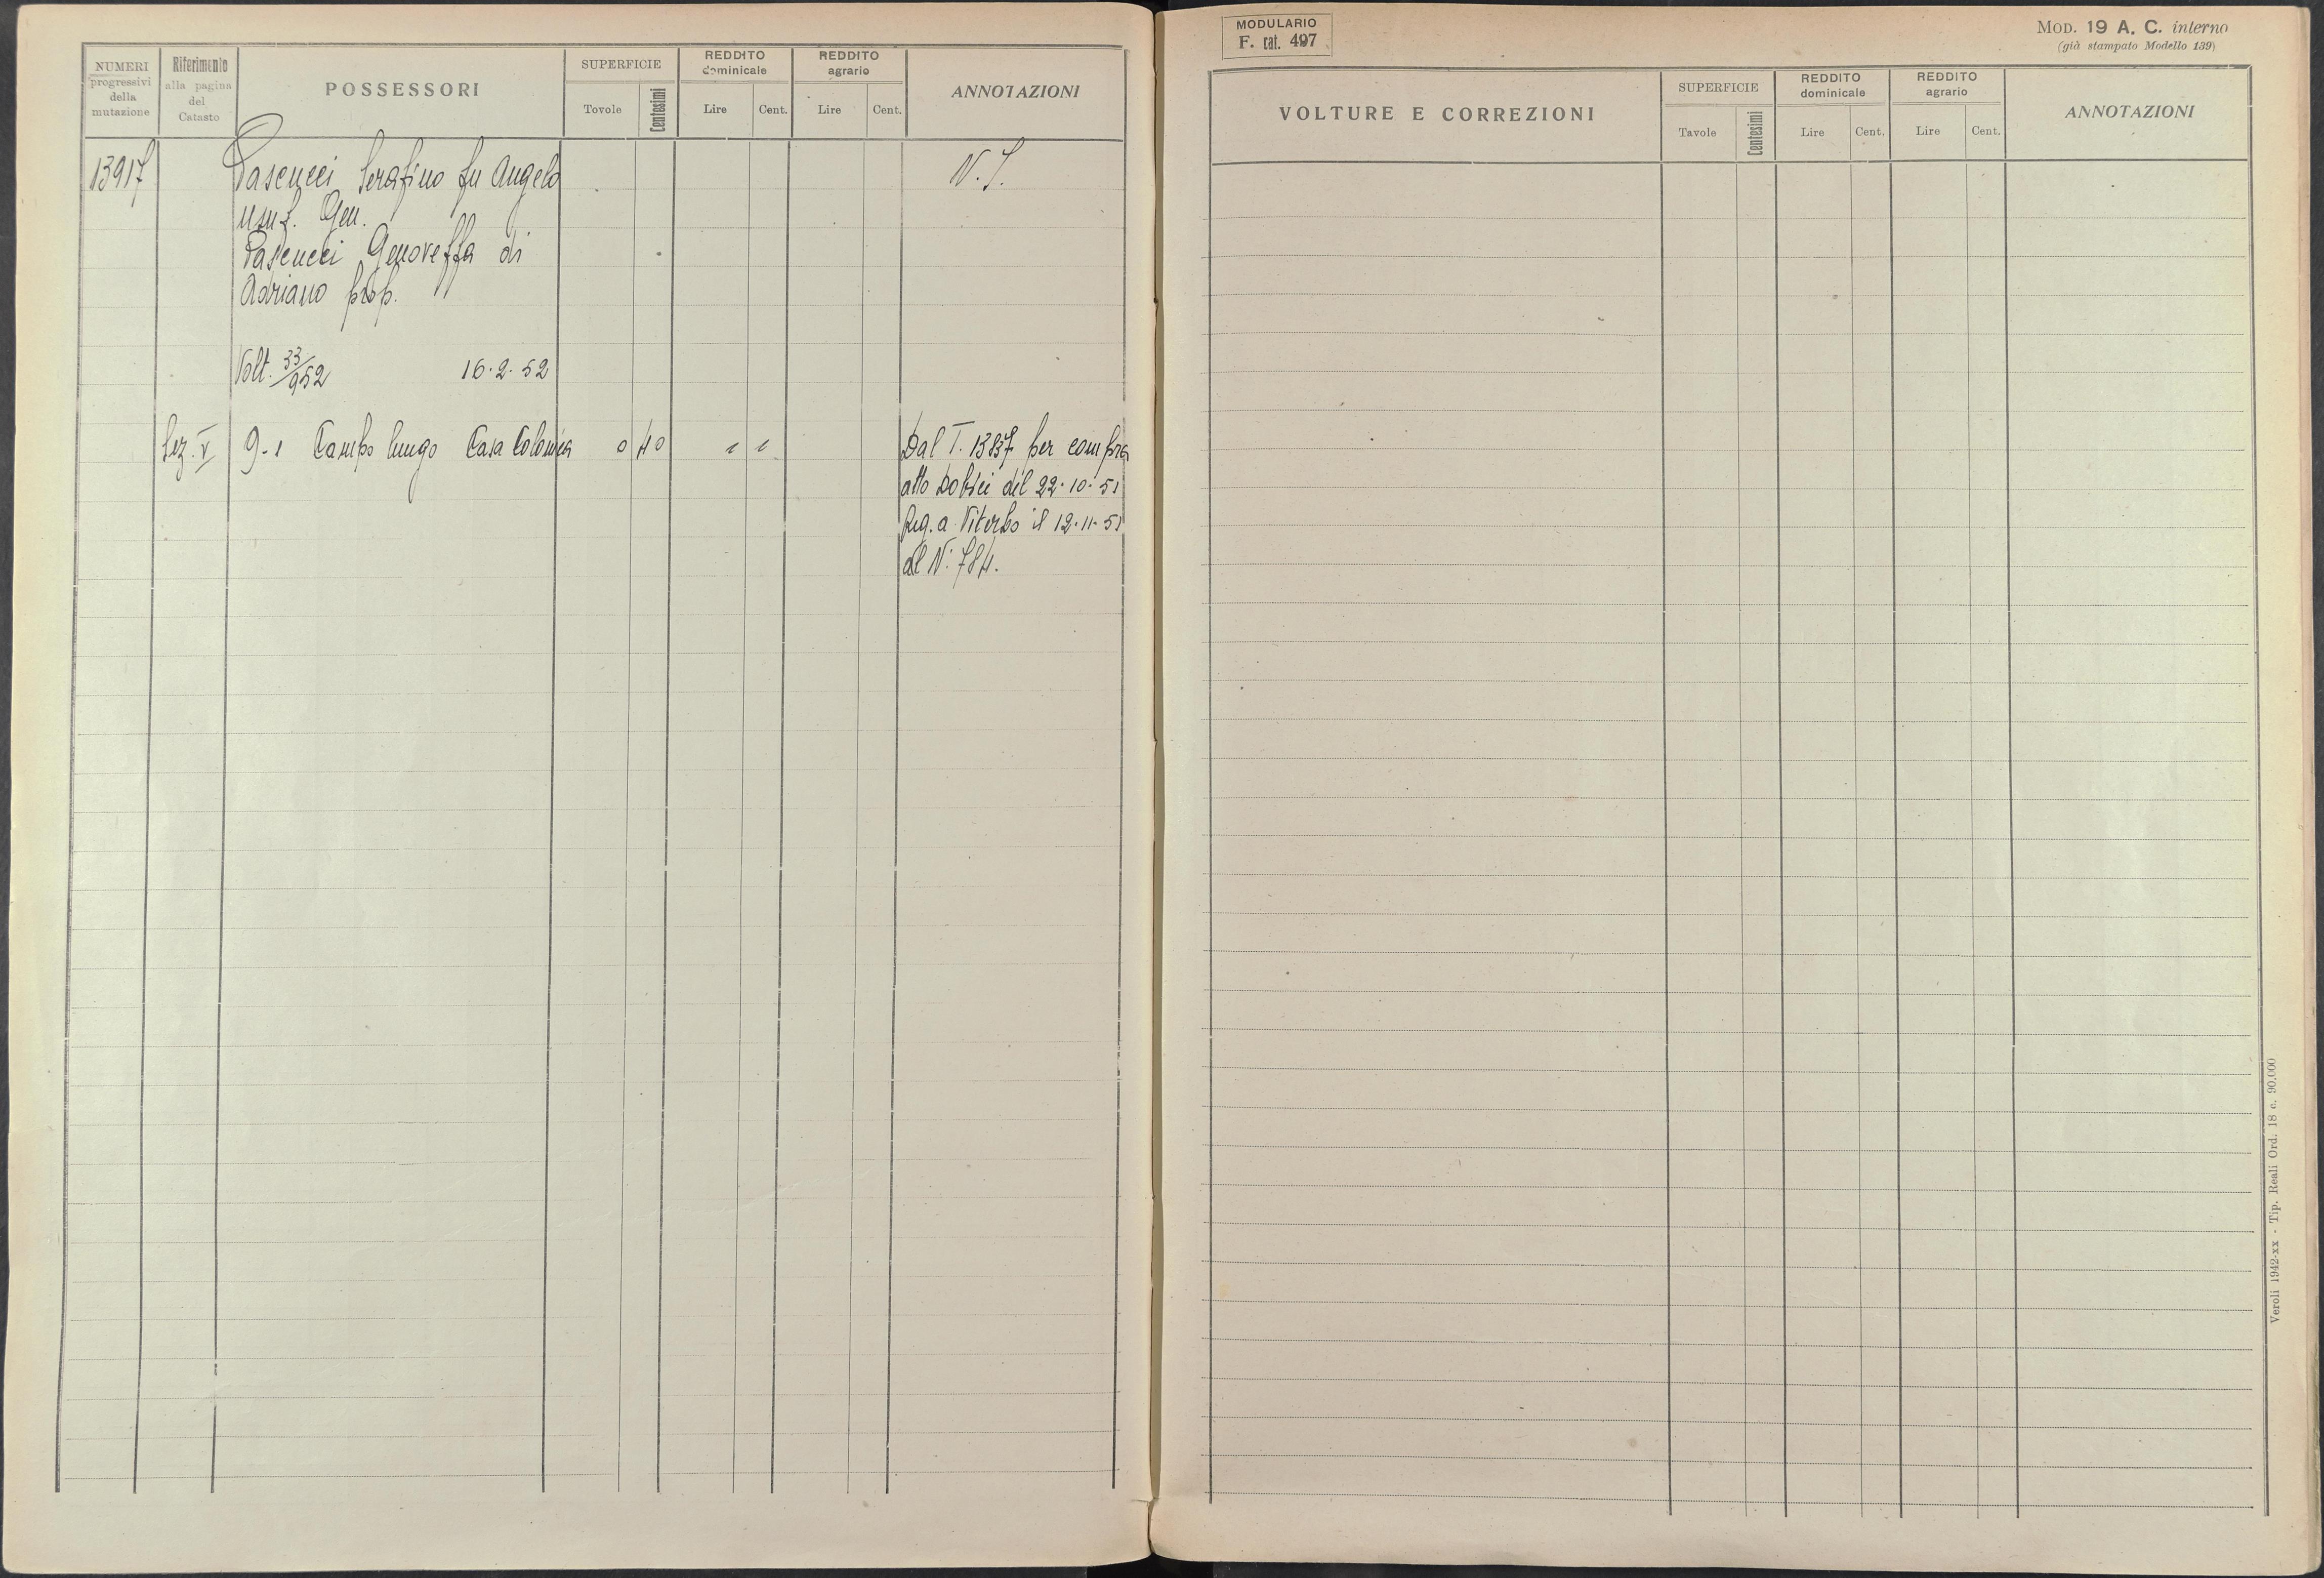 NUMERI progressivi della mutazione
Riferimento alla pagina del Catasto
POSSESSORI
SUPERFICIE
Tavole Centesimi
REDDITO dominicale
Lire Cent.
REDDITO agrario
Lire Cent.
ANNOTAZIONI
13917 Pascucci Serafino fu Angelo N.T.
usuf. Gen.
Pascucci Genoveffa di
Adriano prop.
Volt. 33/952 16.2.52
Sez. V 9-1 Campo lungo Casa Colonica 0 40 Dal T. per compra
atto del 22.10.51
Reg. a Viterbo il 12.11.51
al N. 784.
MODULARIO
F. cat. 497
MOD. 19 A. C. interno
(già stampato Modello 139)
VOLTURE E CORREZIONI
SUPERFICIE
Tavole Centesimi
REDDITO dominicale
Lire Cent.
REDDITO agrario
Lire Cent.
ANNOTAZIONI
Veroli 1942-XX - Tip. Reali Ord. 18 c. 90.000